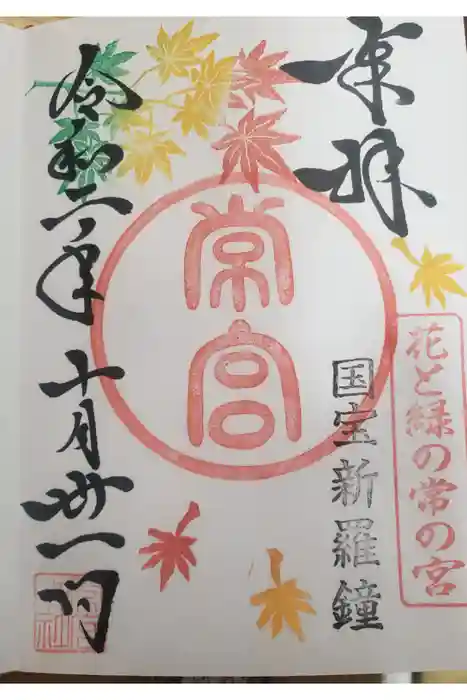 奉拝
花と緑の常の宮
国宝新羅鐘
常宮
令和二年十月卅一日